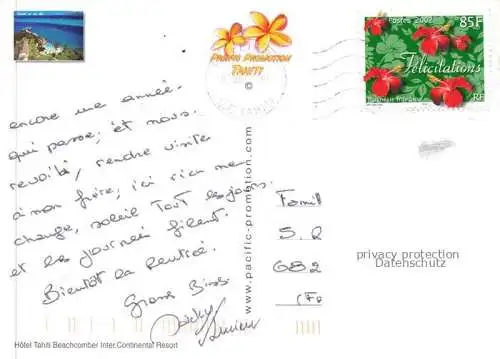 PACIFIC PROMOTION
TAHITI
©
Postes 2002 85F
Félicitations
Polynésie française RF
encore une année
qui passe, et nous
revoilà, rendre visite
à mon frère, ici rien ne
change, soleil tout les jours
et les journées filent.
Bientôt la rentrée.
Gros Bises
www.pacific-promotion.com
Famill
S. R
682
(Fo
privacy protection
Datenschutz
Hôtel Tahiti Beachcomber Inter.Continental Resort